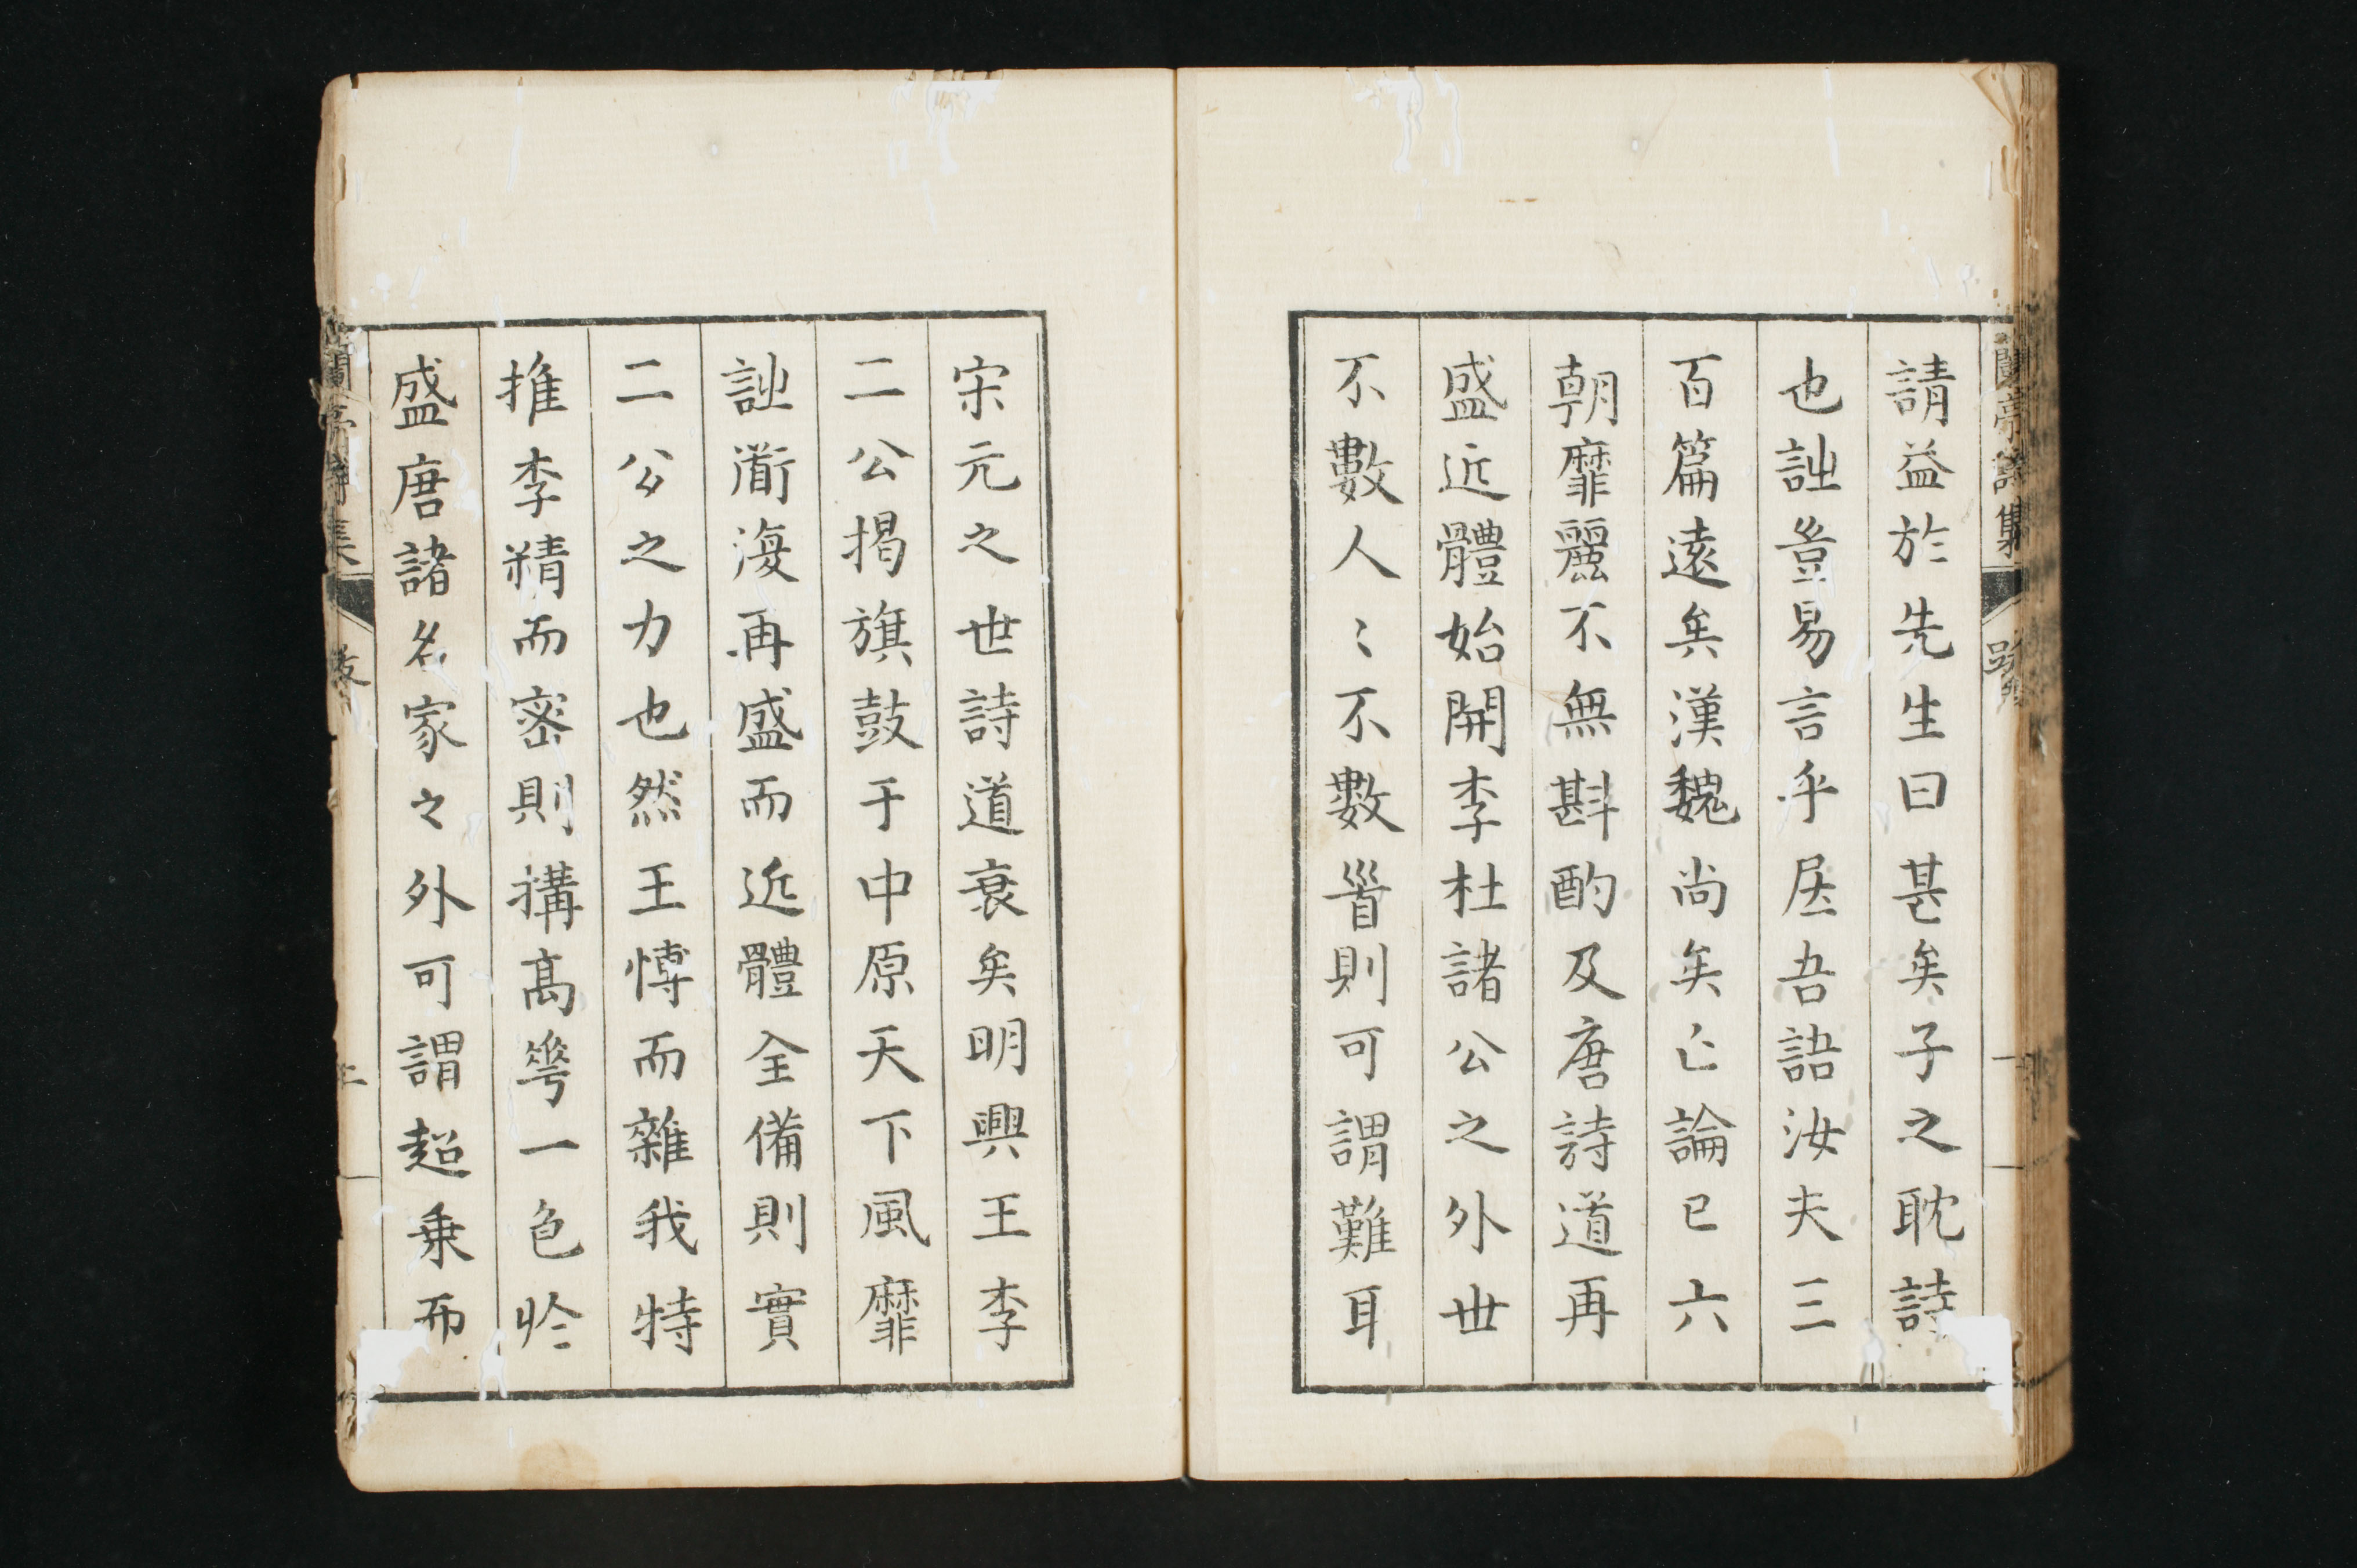 請益於先生曰甚矣子之耽詩
也詘豈易言乎㞐吾語汝夫三
百篇遠矣漢魏尚矣亡論已六
朝靡麗不無斟酌及唐詩道再
盛近體始開李杜諸公之外世
不數人〻不數首則可謂難耳
宋元之世詩道衰矣明興王李
二公揭旗鼓于中原天下風靡
詘衜澓再盛而近體全備則實
二公之力也然王愽而雜我特
推李精而密則搆高華一色於
盛唐諸名家之外可謂超乗而
蘭亭詩集
跋
二